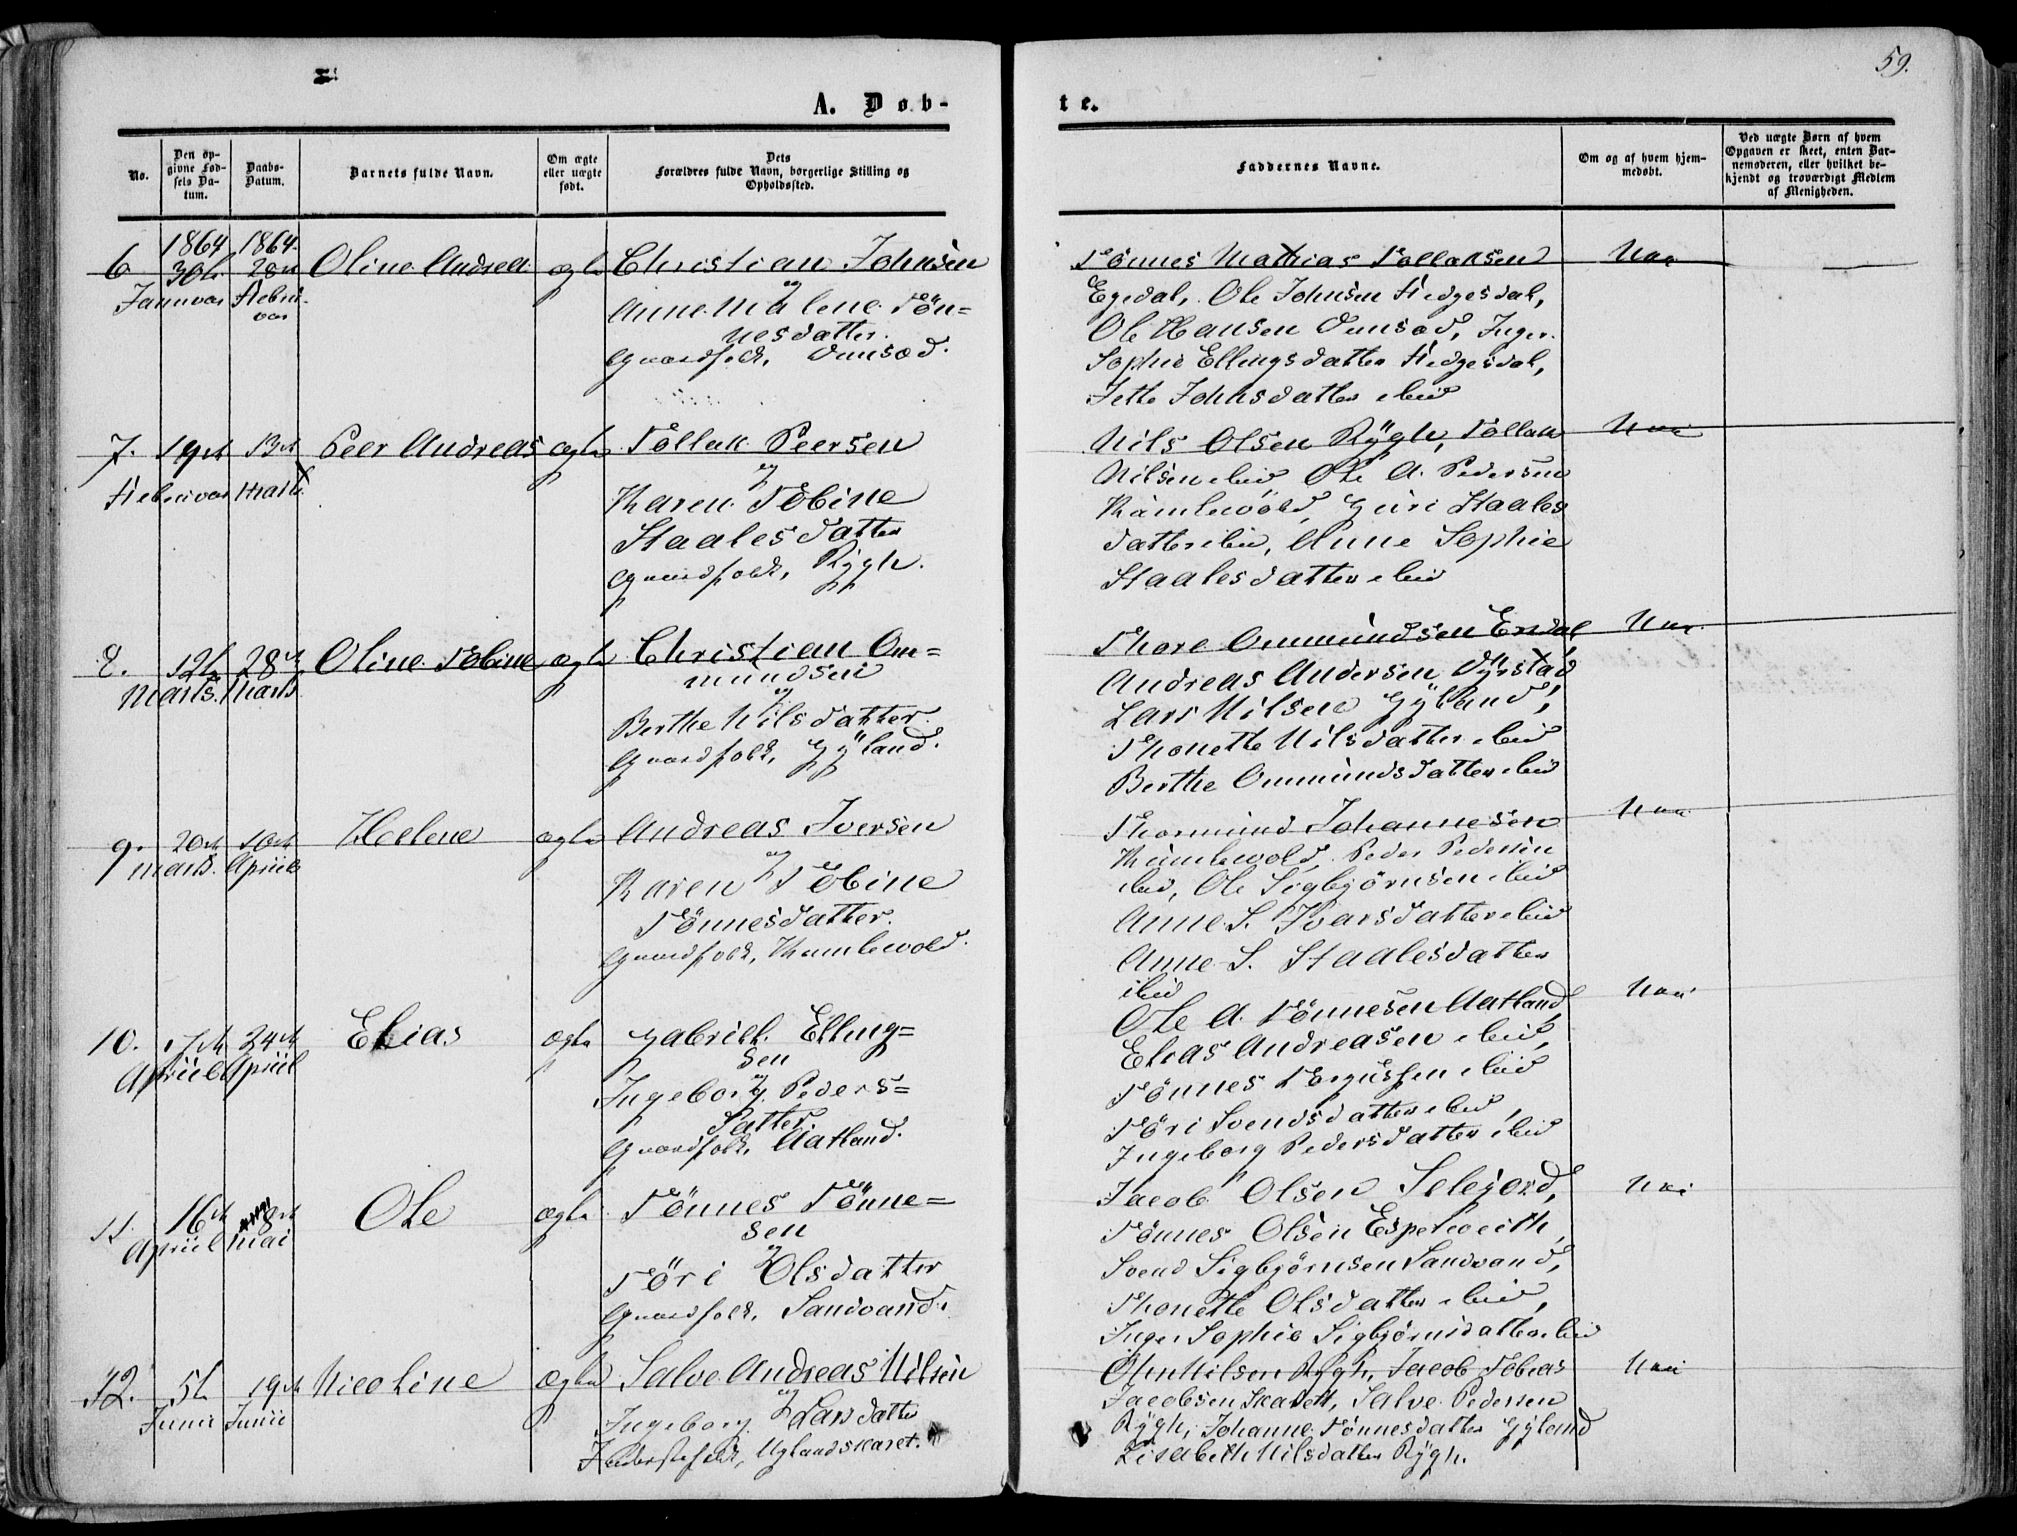 59.
A. Døb-
te.
No.
Den opgivne Fødsels Datum.
Daabs-Datum.
Barnets fulde Navn.
Om ægte eller uægte født.
Dets Forældres fulde Navn, borgerlige Stilling og Opholdssted.
Faddernes Navne.
Om og af hvem hjemmedøbt.
Ved uægte Børn af hvem Opgaven er skeet, enten Barnemoderen, eller hvilket bekjendt og troværdigt Medlem af Menigheden.
1864 1864
6 30te 28de Oline Andrea ægte Christian Johnsen
Januar Februar
og
Anne Malene Tön=
nesdatter
Gaardfolk, Dunsæd.
Tönnes Mathias Tollaksen
Egedal, Ole Johnsen Hedgesdal,
Ole Hansen Dunsæd, Inger
Sophie Ellingsdatter Hedgesdal,
Jethe Johnsdatter ibid
Nei
7. 19de 13de Peer Andreas ægte Tollak Peersen
Februar Marts
og
Karen Tobine
Staalesdatter
Gaardfolk, Rÿgh.
Nils Olsen Rÿgh, Tollak
Nilsen ibid Ole A. Pedersen
Kumlevold, Guri Staales
datter ibid, Anne Sophie
Staalesdatter ibid
Nei
8. 12te 28de Oline Tobine ægte Christian Om=
Marts Marts
mundsen
og
Berthe Nilsdatter
Gaardfolk, Gÿland.
Thore Ommundsen Egdal
Andreas Andersen Dÿrstad
Lars Nilsen Gÿland,
Thonette Nilsdatter ibid
Berthe Ommundsdatter ibid
Nei
9. 20de 10de Helene ægte Andreas Iversen
Marts. Apriil
og
Karen Tobine
Tönnesdatter.
Gaardfolk, Kumlevold.
Thormund Johannesen
Kumlevold, Peder Pedersen
ibid, Ole Sigbjörnsen ibid
Anne S. Ivarsdatter ibid
Anne S. Staalesdatter
ibid
Nei
10. 7de 24de Elias ægte Gabriel Elling=
Apriil Apriil
sen
og
Ingeborg Peders=
datter.
Gaardfolk, Aatland.
Ole A. Tönnesen Aatland,
Elias Andreasen ibid,
Tönnes Tergussen ibid
Töri Svendsdatter ibid,
Ingeborg Pedersdatter ibid
Nei
11. 16de 8de Ole ægte Tönnes Tönne=
Apriil Mai
sen
og
Töri Olsdatter
Gaardfolk, Sandvand.
Jacob Olsen Selejord,
Tönnes Olsen Espetveith,
Svend Sigbjörnsen Sandvand,
Thonette Olsdatter ibid,
Inger Sophie Sigbjörnsdatter ibid
Nei
12. 5te 19de Nicoline ægte Salve Andreas Nilsen
Junii Junii
og
Ingeborg Larsdatter
Inderstefolk, Uglandskaret.
Olen Nilsen Rÿgh, Jacob Tobias
Jacobsen Skarett, Salve Pedersen
Rÿgh, Johanne Tönnesdatter Gÿland
Lisabeth Nilsdatter Rÿgh.
Nei